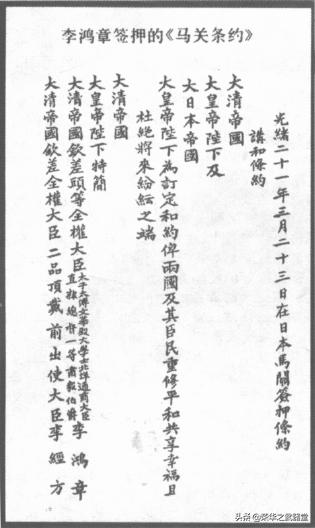 李鸿章签押的《马关条约》
光緒二十一年三月二十三日在日本馬關簽押條約
講和條約
大清帝國
大皇帝陛下及
大日本帝國
大皇帝陛下為訂定和約俾兩國及其臣民重修平和共享幸福且
杜絕將來紛紜之端
大清帝國
大皇帝陛下特簡
大清帝國欽差頭等全權大臣太子太傅文華殿大學士北洋通商大臣直隸總督一等肅毅伯爵李鴻章
大清帝國欽差全權大臣二品頂戴前出使大臣李經方
头条@荣华之武器堂